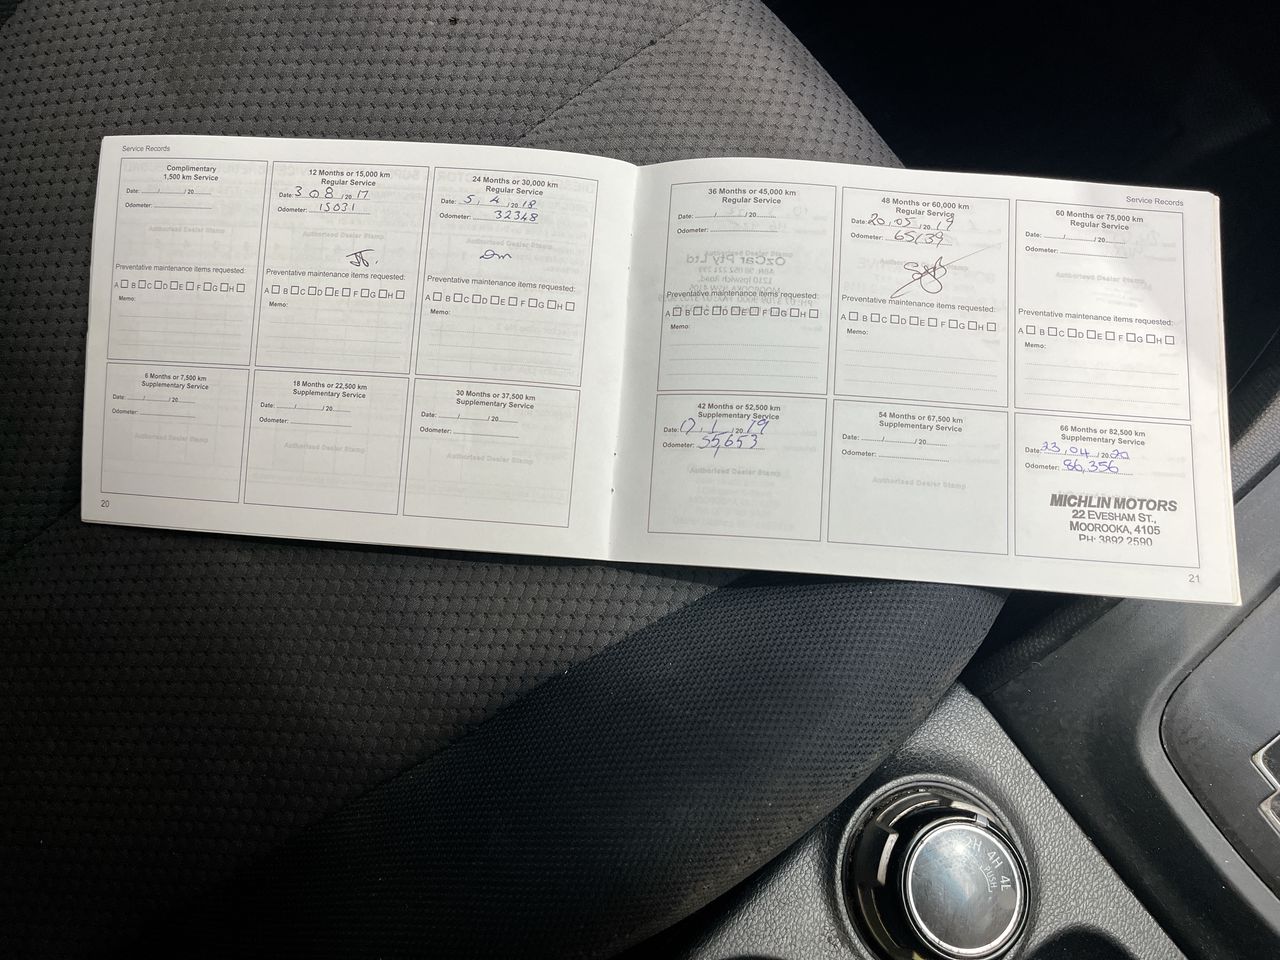 Service Records
Complimentary
1,500 km Service
Date: ....../....../ 20......
Odometer:
Authorised Dealer Stamp
Preventative maintenance items requested:
A B C D E F G H
Memo:
12 Months or 15,000 km
Regular Service
Date: 3 0 8 / 20 17
Odometer: 15031
Authorised Dealer Stamp
Preventative maintenance items requested:
A B C D E F G H
Memo:
24 Months or 30,000 km
Regular Service
Date: 5 / 4 / 20 18
Odometer: 32348
Authorised Dealer Stamp
Preventative maintenance items requested:
A B C D E F G H
Memo:
6 Months or 7,500 km
Supplementary Service
Date: ....../....../ 20......
Odometer:
Authorised Dealer Stamp
18 Months or 22,500 km
Supplementary Service
Date: ....../....../ 20......
Odometer:
Authorised Dealer Stamp
30 Months or 37,500 km
Supplementary Service
Date: ....../....../ 20......
Odometer:
Authorised Dealer Stamp
20
Service Records
36 Months or 45,000 km
Regular Service
Date: ....../....../ 20......
Odometer:
Preventative maintenance items requested:
A B C D E F G H
Memo:
48 Months or 60,000 km
Regular Service
Date: 20 / 05 / 20 19
Odometer: 65139
Preventative maintenance items requested:
A B C D E F G H
Memo:
60 Months or 75,000 km
Regular Service
Date: ....../....../ 20......
Odometer:
Authorised Dealer Stamp
Preventative maintenance items requested:
A B C D E F G H
Memo:
42 Months or 52,500 km
Supplementary Service
Date: 17 / 1 / 20 19
Odometer: 55,653
Authorised Dealer Stamp
54 Months or 67,500 km
Supplementary Service
Date: ....../....../ 20......
Odometer:
Authorised Dealer Stamp
66 Months or 82,500 km
Supplementary Service
Date: 23 / 04 / 20 20
Odometer: 86,356
MICHLIN MOTORS
22 EVESHAM ST.,
MOOROOKA, 4105
PH: 3892 2590
21
2H 4H 4L
PUSH